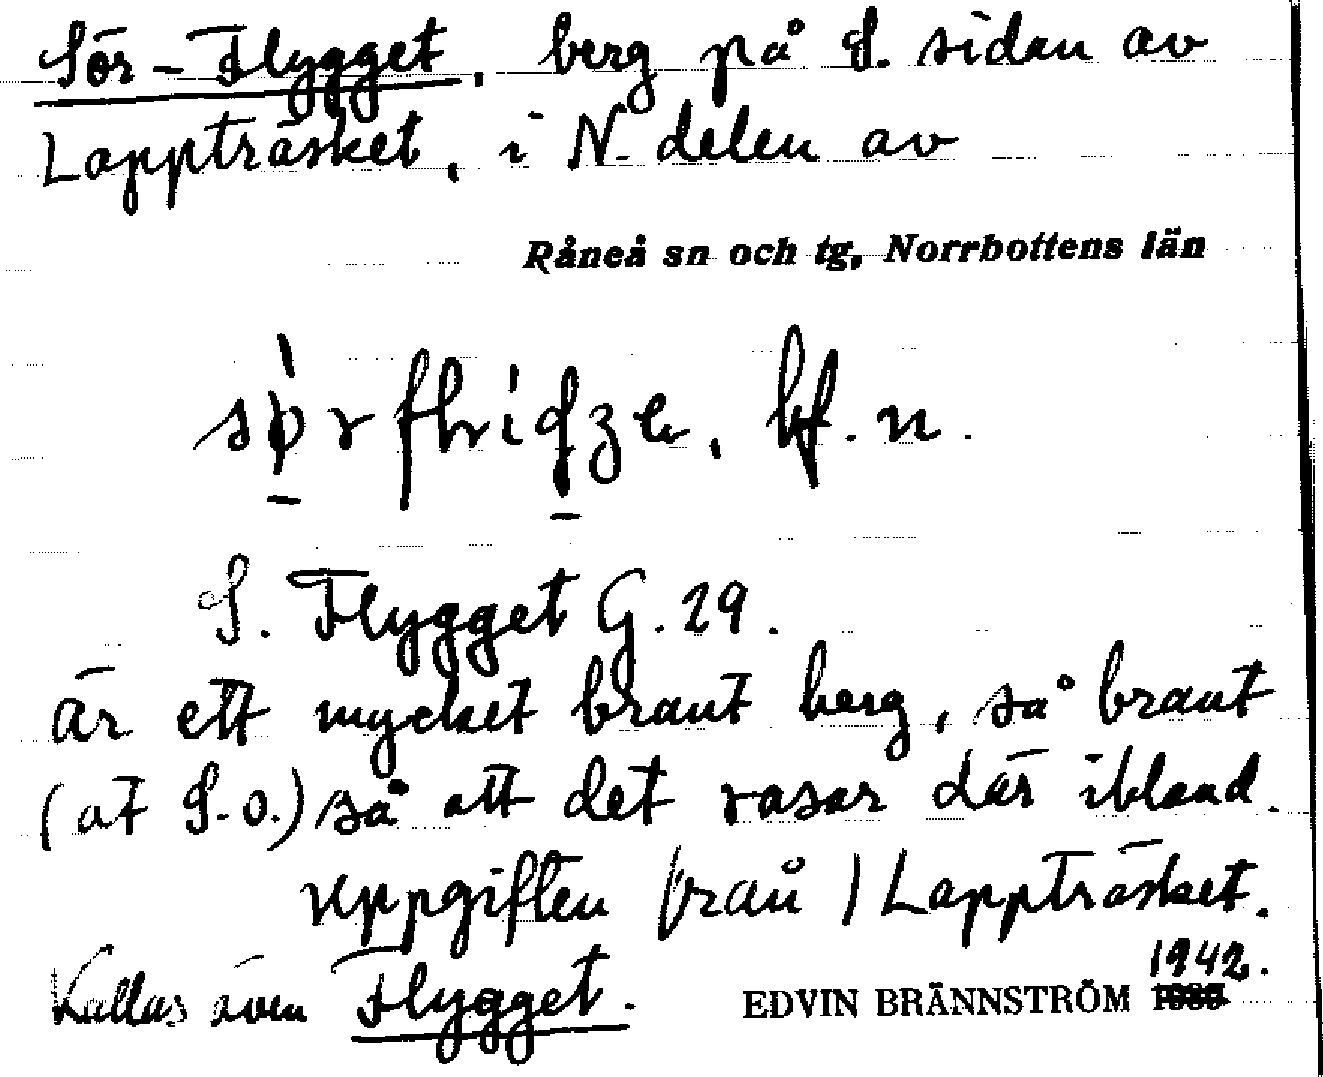 Sör-Flygget, berg på S. sidan av
Lappträsket, i N. delen av
Råneå sn och tg, Norrbottens län
bf. n.
S. Flygget G. 29.
är ett mycket brant berg, så brant
(åt S.O.) så att det rasar där ibland.
Uppgiften från Lappträsket.
Kallas även Flygget.
EDVIN BRÄNNSTRÖM 1942.